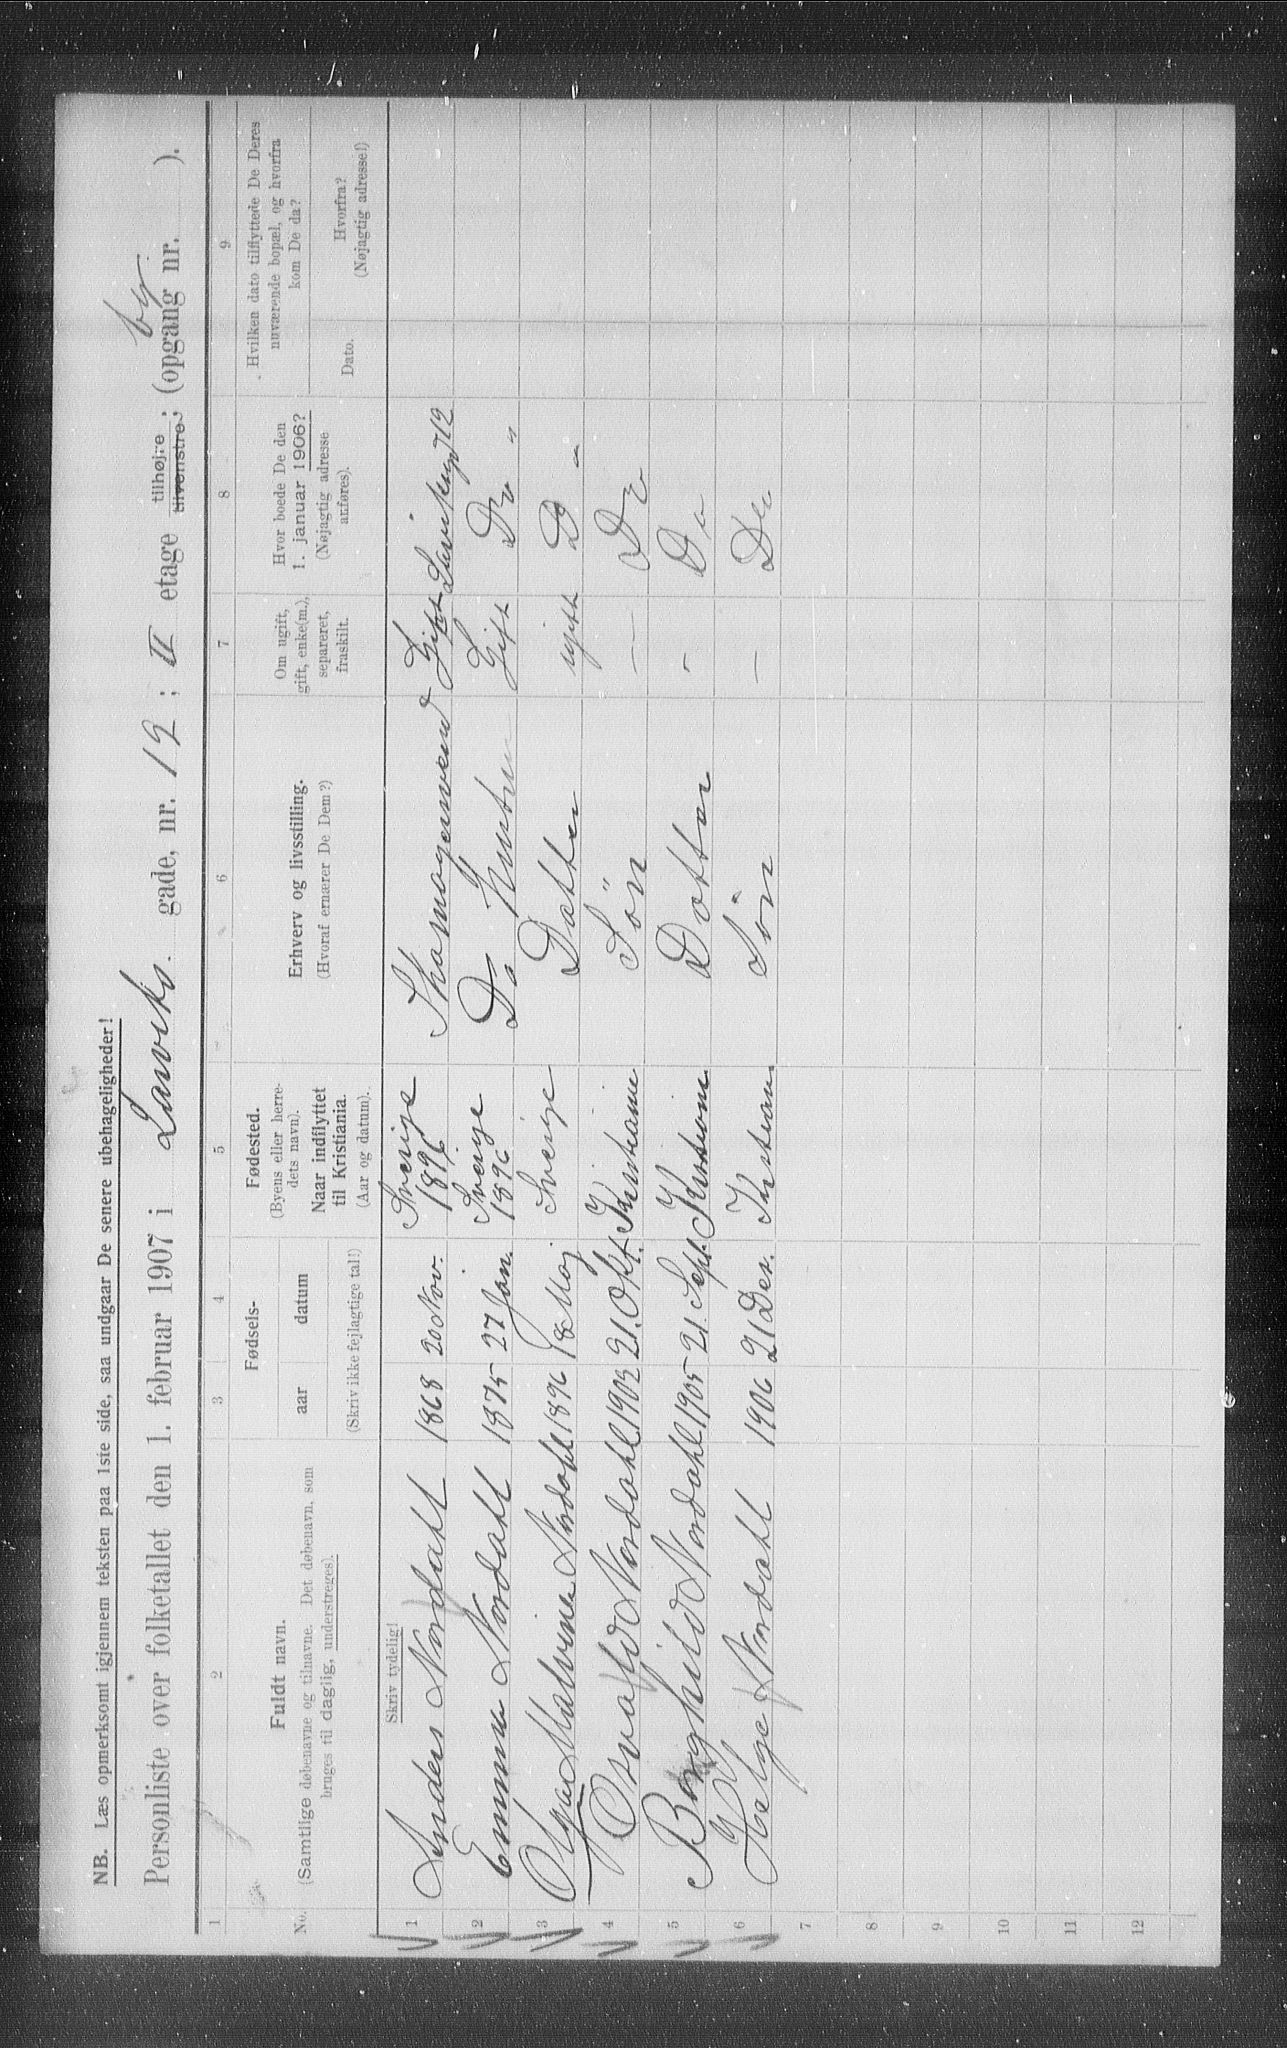 NB. Læs opmerksomt igjennem teksten paa 1ste side, saa undgaar De senere ubehageligheder!
Personliste over folketallet den 1. februar 1907 i Laviks. gade, nr. 12 ; II etage tilhøjre ; (opgang nr. by ).
tilvenstre
1 2 3 4 5 6 7 8 9
No.
Fuldt navn.
(Samtlige døbenavne og tilnavne. Det døbenavn, som
bruges til daglig, understreges).
Fødsels-
aar datum
(Skriv ikke fejlagtige tal!)
Fødested.
(Byens eller herre-
dets navn).
Naar indflyttet
til Kristiania.
(Aar og datum).
Erhverv og livsstilling.
(Hvoraf ernærer De Dem?)
Om ugift,
gift, enke(m.),
separeret,
fraskilt.
Hvor boede De den
1. januar 1906?
(Nøjagtig adresse
anføres).
Hvilken dato tilflyttede De Deres
nuværende bopæl, og hvorfra
kom De da?
Dato.
Hvorfra?
(Nøjagtig adresse!)
Skriv tydelig!
1 Anders Nordahl 1868 20 Nov. Sverige 1896 Skomagersvend Gift Laviksgd 12
2 Emma Nordahl 1875 27 Jan. Sverige 1896 Do Hustru Gift Do "
3 Olga Malvina Nordahl 1896 18 Maj Sverige Datter ugift Do "
4 Osvald Nordahl 1903 21. Okt. Kristiania Sön — Do
5 Borghild Nordahl 1905 21. Sept. Kristiania Dotter - Do
6 Helge Nordahl 1906 21 Des. Kristian Sön — Do
7
8
9
10
11
12